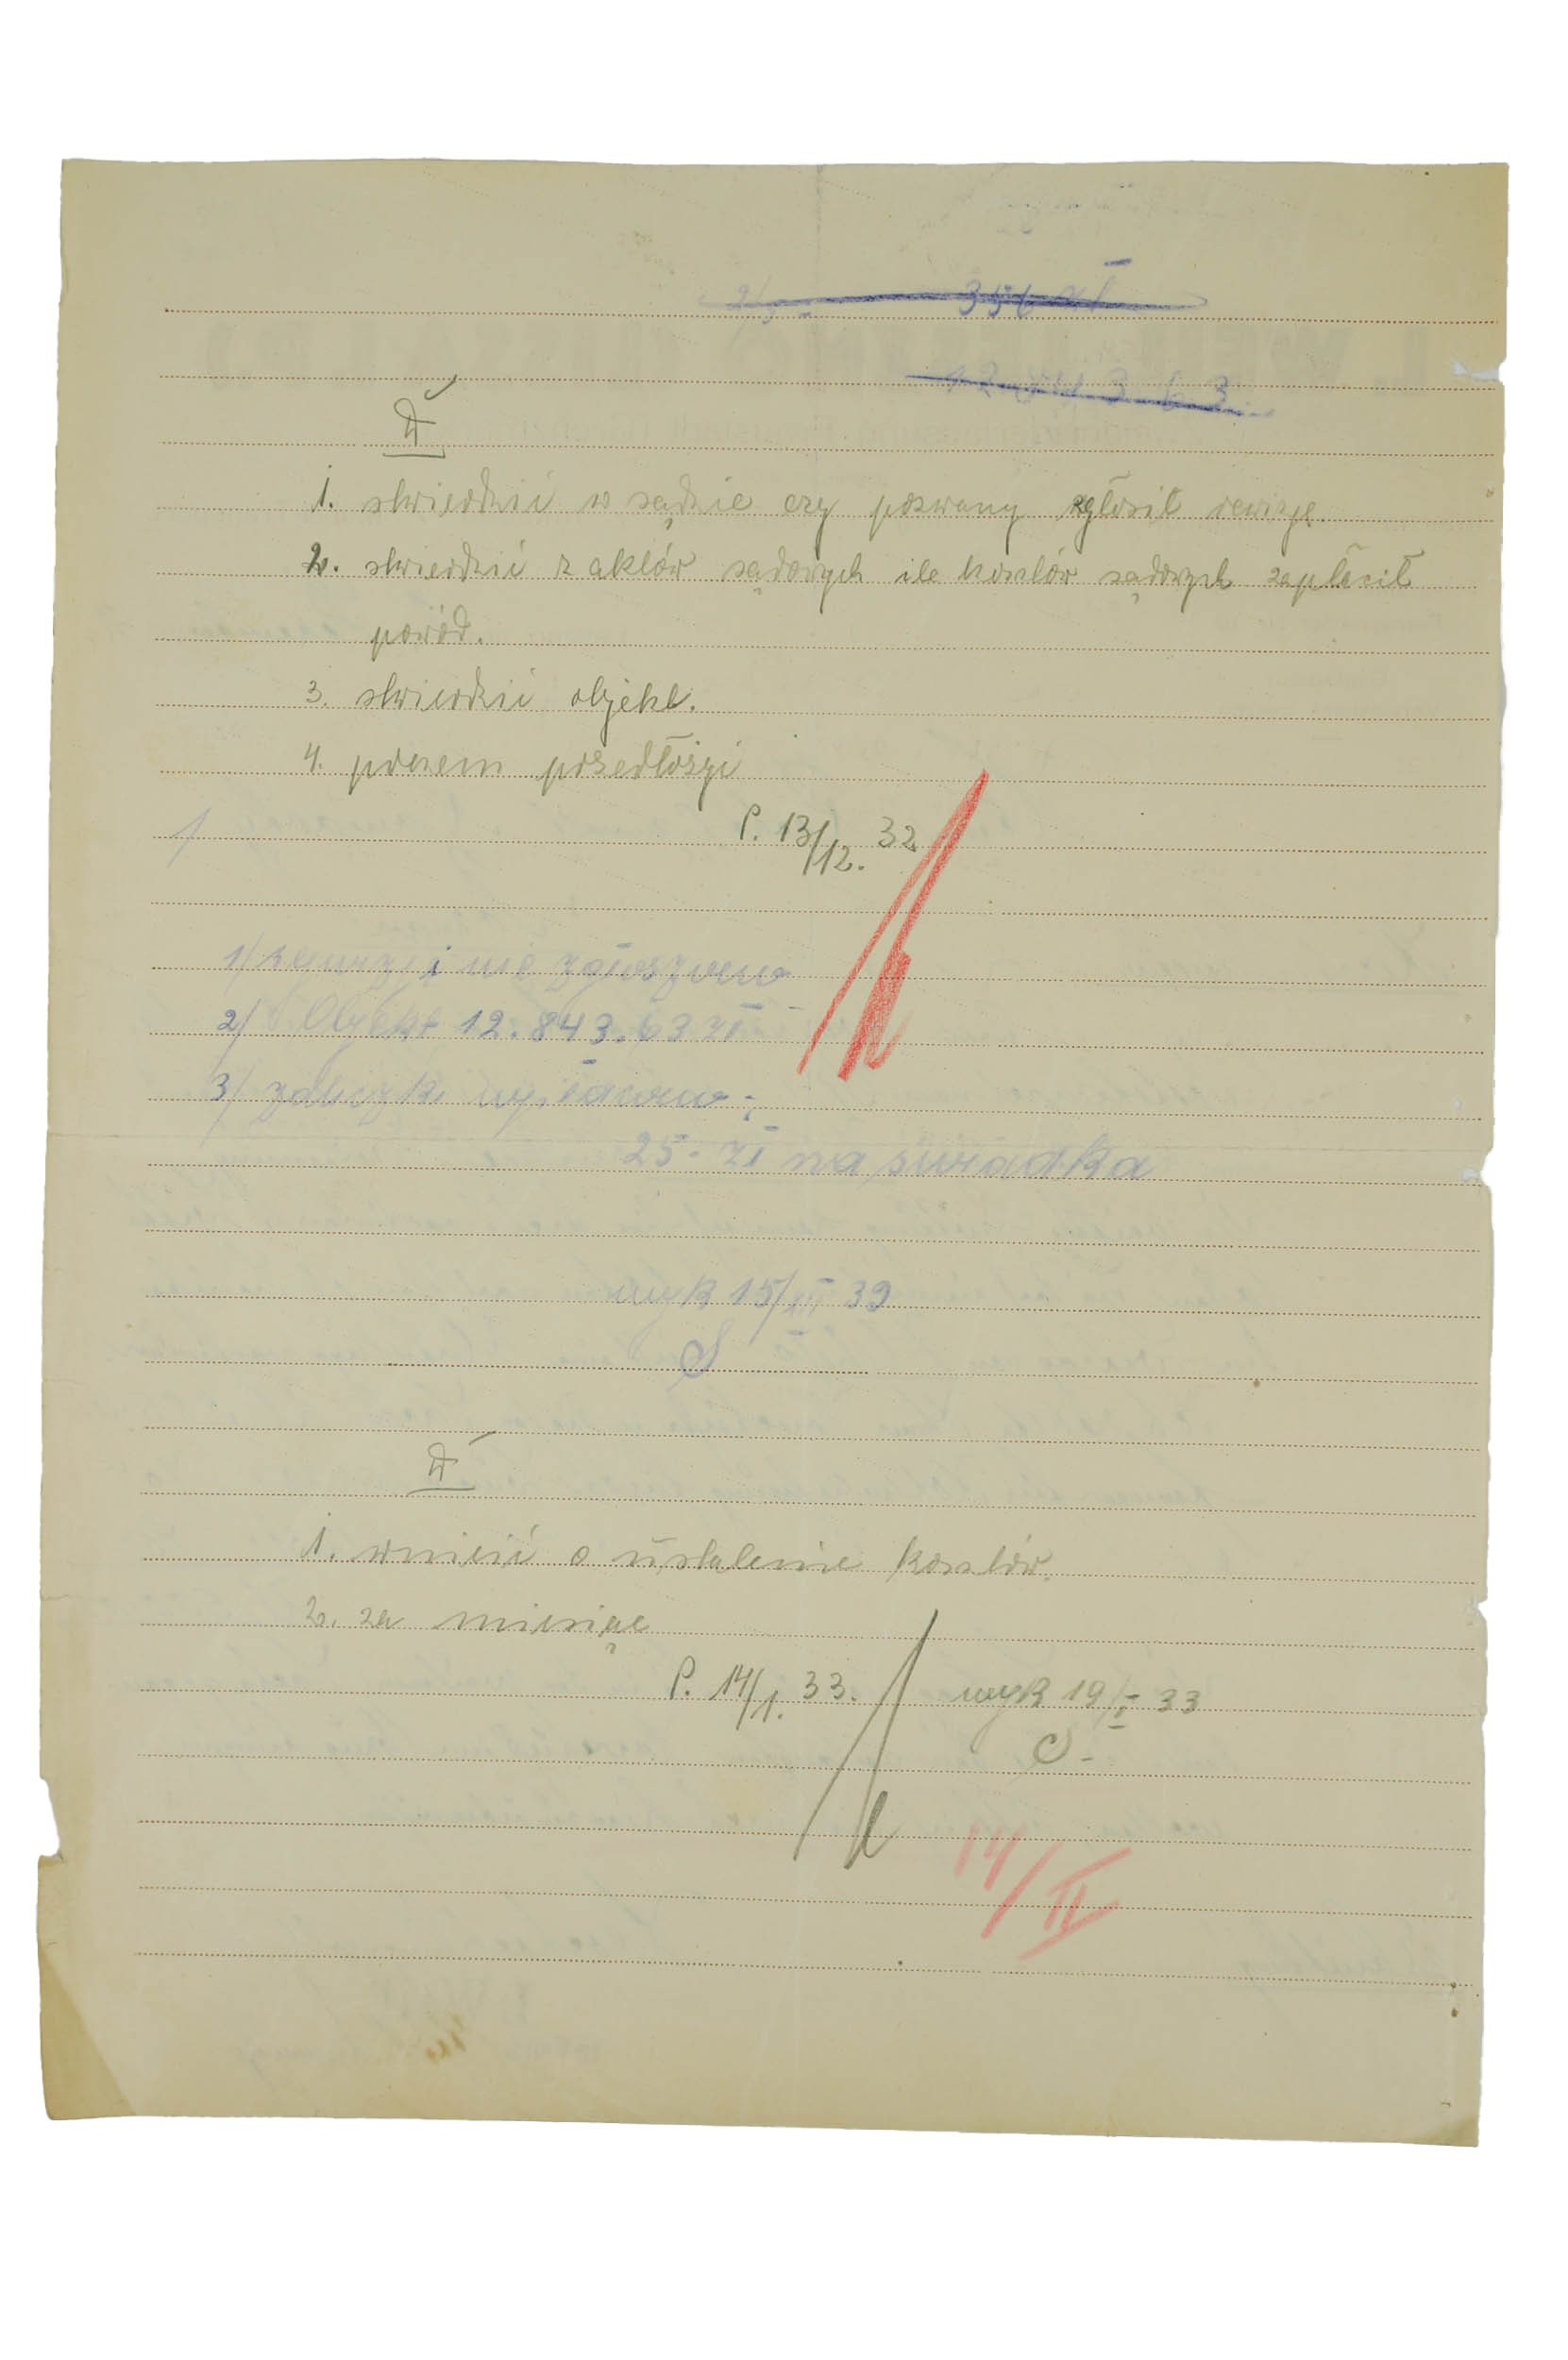 356 zł
12.843.63
1. stwierdzić w sądzie czy pozwany zgłosił rewizję.
2. stwierdzić z aktów sądowych ile kosztów sądowych zapłacił
powód.
3. stwierdzić objekt.
4. poczem przedłożyć
P. 13/12. 32
1/ Rewizji nie zgłoszono
2/ Objekt 12.843.63 zł
3/ zaliczki wpłacono:
25.- zł na świadka
wyk 15/III 39
S
1. wnieść o ustalenie kosztów.
2. za miesiąc
P. 14/1. 33. wyk 19/I 33
S.
14/II